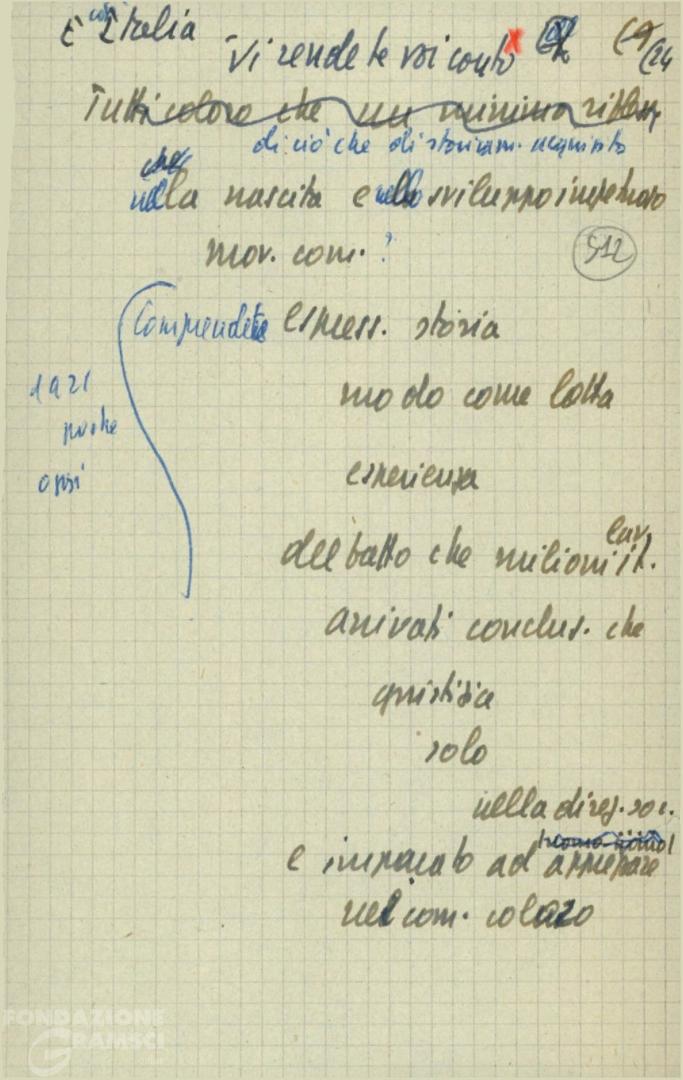 È così Italia
Vi rendete voi conto 24
Tutti coloro che un minimo
di ciò che di storicam. acquisito
nella nascita e nello sviluppo impetuoso
mov. com. ?
512
Comprendete espress. storia
modo come lotta
1921
poche
oggi
esperienza
del fatto che milioni lav. it.
arrivati conclus. che
giustizia
solo
nella direz. soc.
e imparato ad apprezzare
nel com. colazo
FONDAZIONE
GRAMSCI